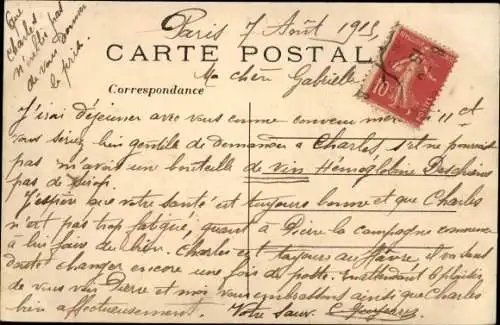 Que
Charles
n'oublie pas
de vous donner
le prix.
Paris 7 Août 1913
CARTE POSTALE
Ma chère Gabrielle
Correspondance
10
J'irai déjeuner avec vous comme convenu 11 et
vous seriez bien gentille de demander à Charles, s'il ne pourrait
pas m'avoir une bouteille de vin Hémoglobine Deschiens
pas de sirop.
J'espère que votre santé est toujours bonne et que Charles
n'est pas trop fatigué, quant à Pierre la campagne commence
à lui faire du bien. Charles est toujours au Havre il va sans
doute changer encore une fois de poste. En attendant le plaisir
de vous voir Pierre et moi vous embrassons ainsi que Charles
bien affectueusement. Votre sœur.